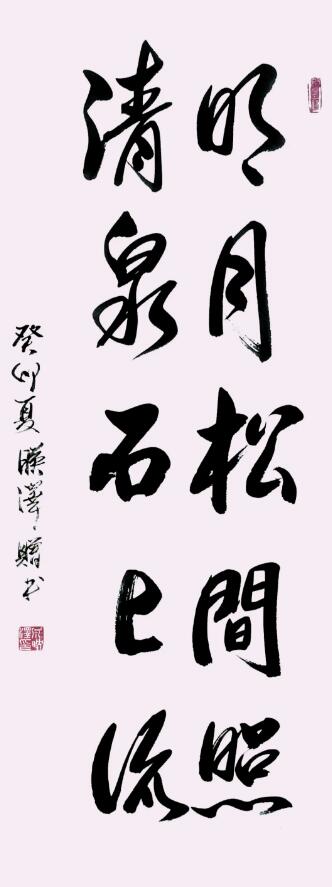 明月松間照
清泉石上流
癸卯夏